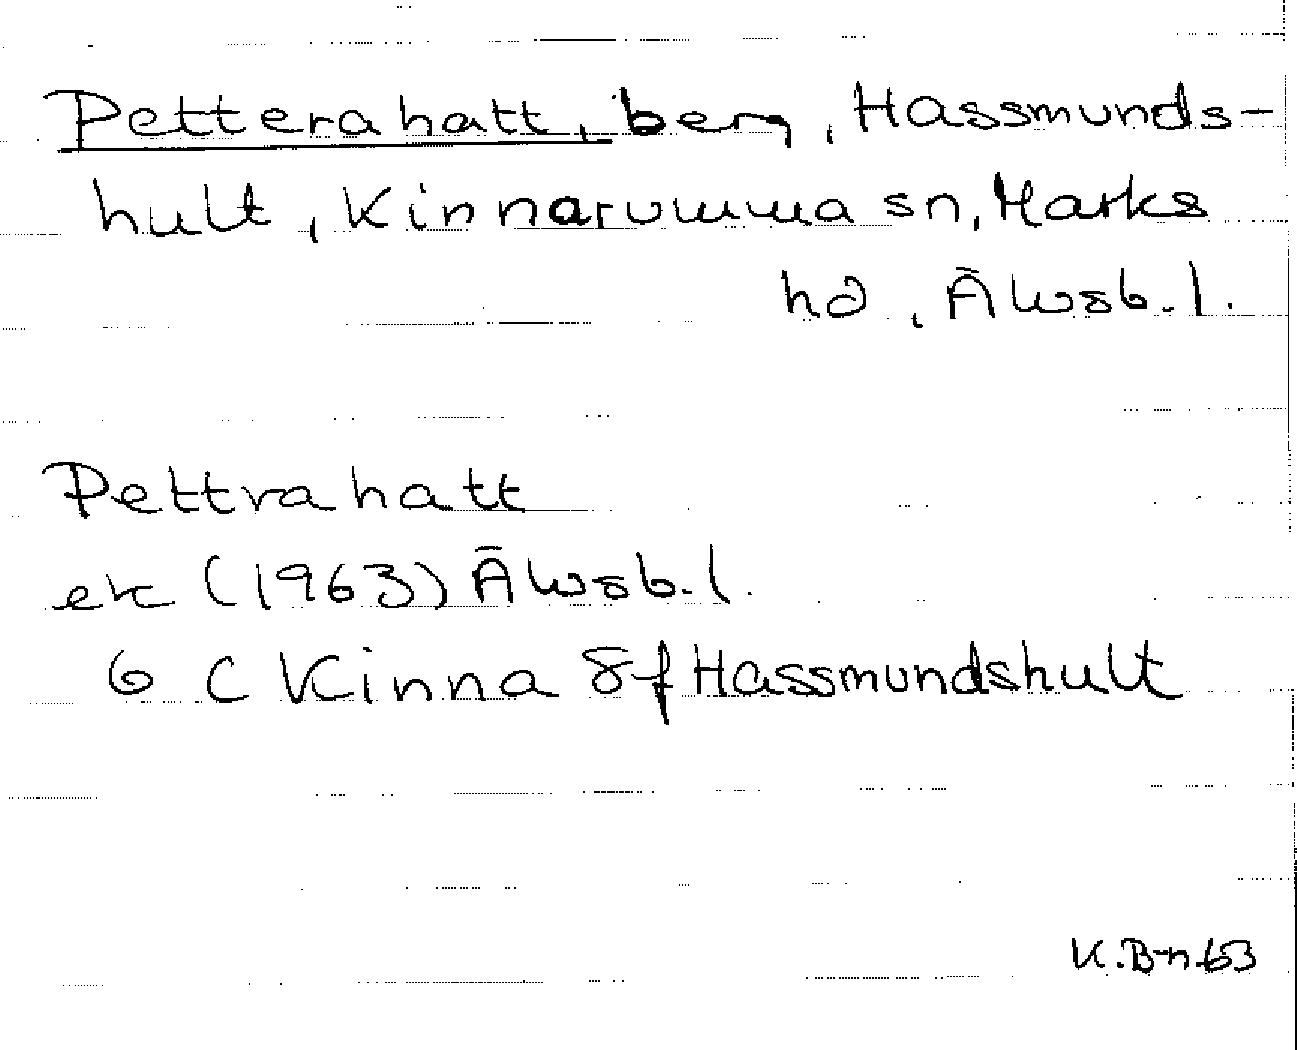 Petterahatt, berg, Hassmunds-
hult, Kinnarumma sn, Marks
hd, Älvsb. l.
Pettrahatt
ek (1963) Älvsb. l.
6 C Kinna öf Hassmundshult
K. B-n 63